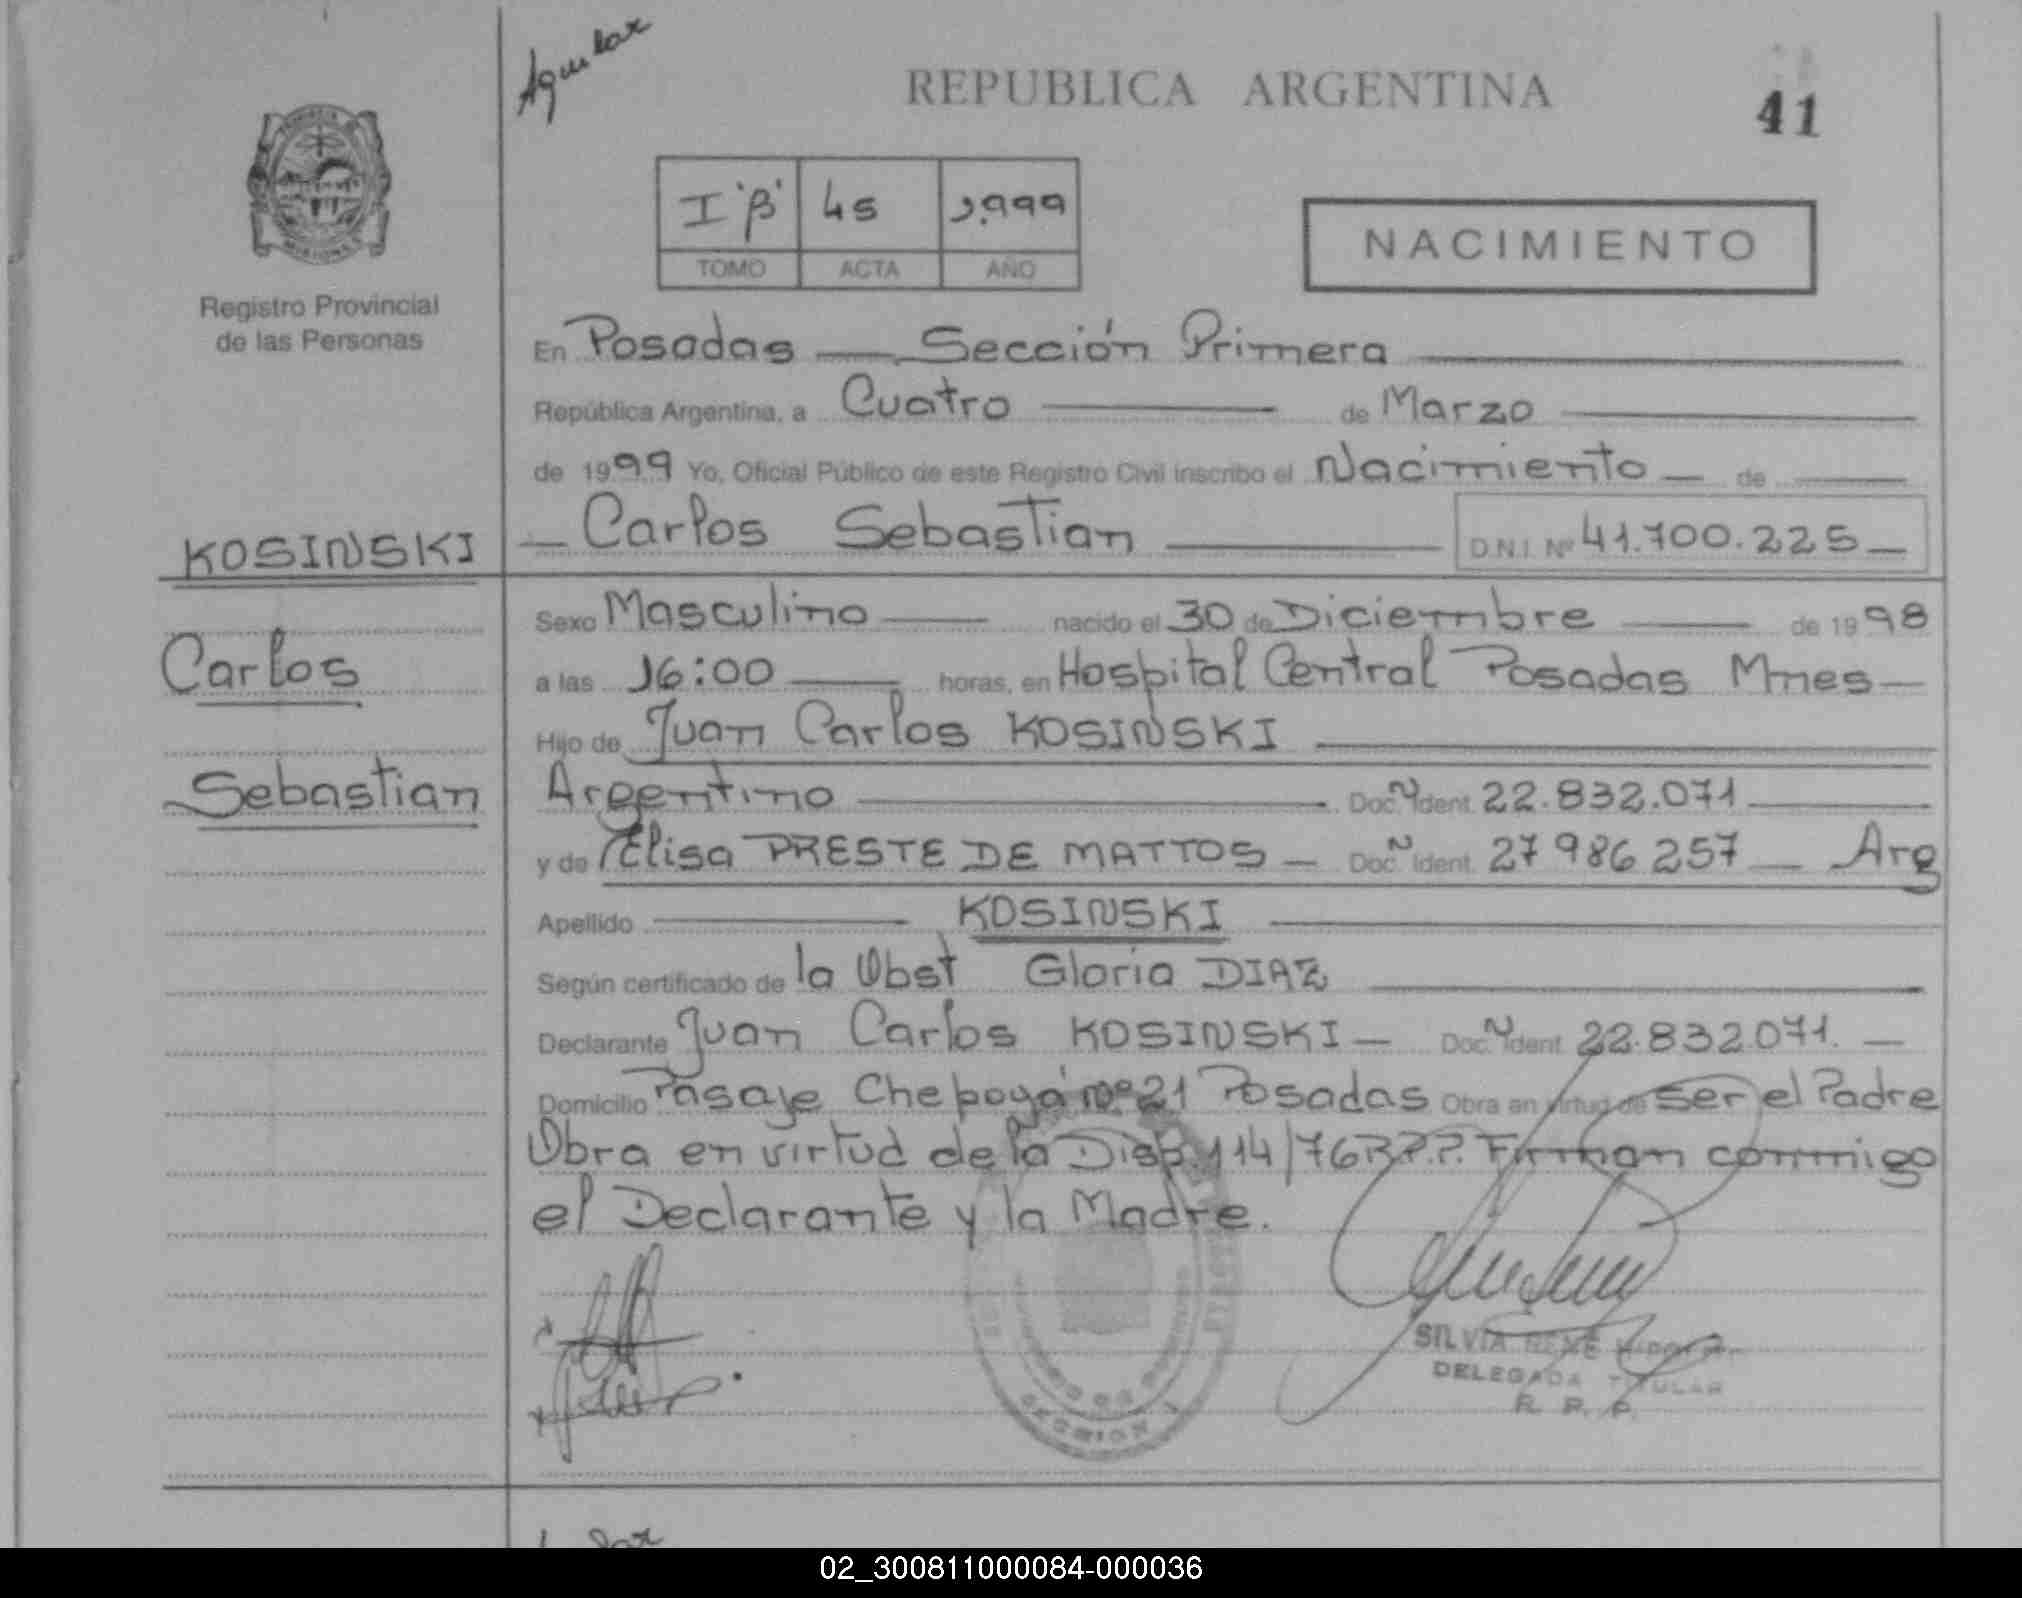 Aguilar
REPUBLICA ARGENTINA
41
I 'B' 45 1.999
TOMO ACTA AÑO
NACIMIENTO
Registro Provincial
de las Personas
En Posadas — Sección Primera
República Argentina, a Cuatro de Marzo
de 1999 Yo, Oficial Público de este Registro Civil inscribo el Nacimiento — de
KOSINSKI
— Carlos Sebastian D.N.I. Nº 41.700.225 —
Sexo Masculino nacido el 30 de Diciembre de 1998
Carlos
a las 16:00 horas, en Hospital Central Posadas Mnes —
Hijo de Juan Carlos KOSINSKI
Sebastian
Argentino Doc. Ident. 22.832.071
y de Elisa PRESTE DE MATTOS — Doc. Ident. 27 986 257 — Arg
Apellido KOSINSKI
Según certificado de la Obst Gloria DIAZ
Declarante Juan Carlos KOSINSKI — Doc. Ident. 22.832.071. —
Domicilio Pasaje Chepoyá nº 21 Posadas Obra en virtud de ser el Padre
Obra en virtud de la Disp. 114/76 R.P.P. Firman conmigo
el Declarante y la Madre.
SILVIA RENE
DELEGADA TITULAR
R. P. P.
SECCION 1
02_300811000084-000036